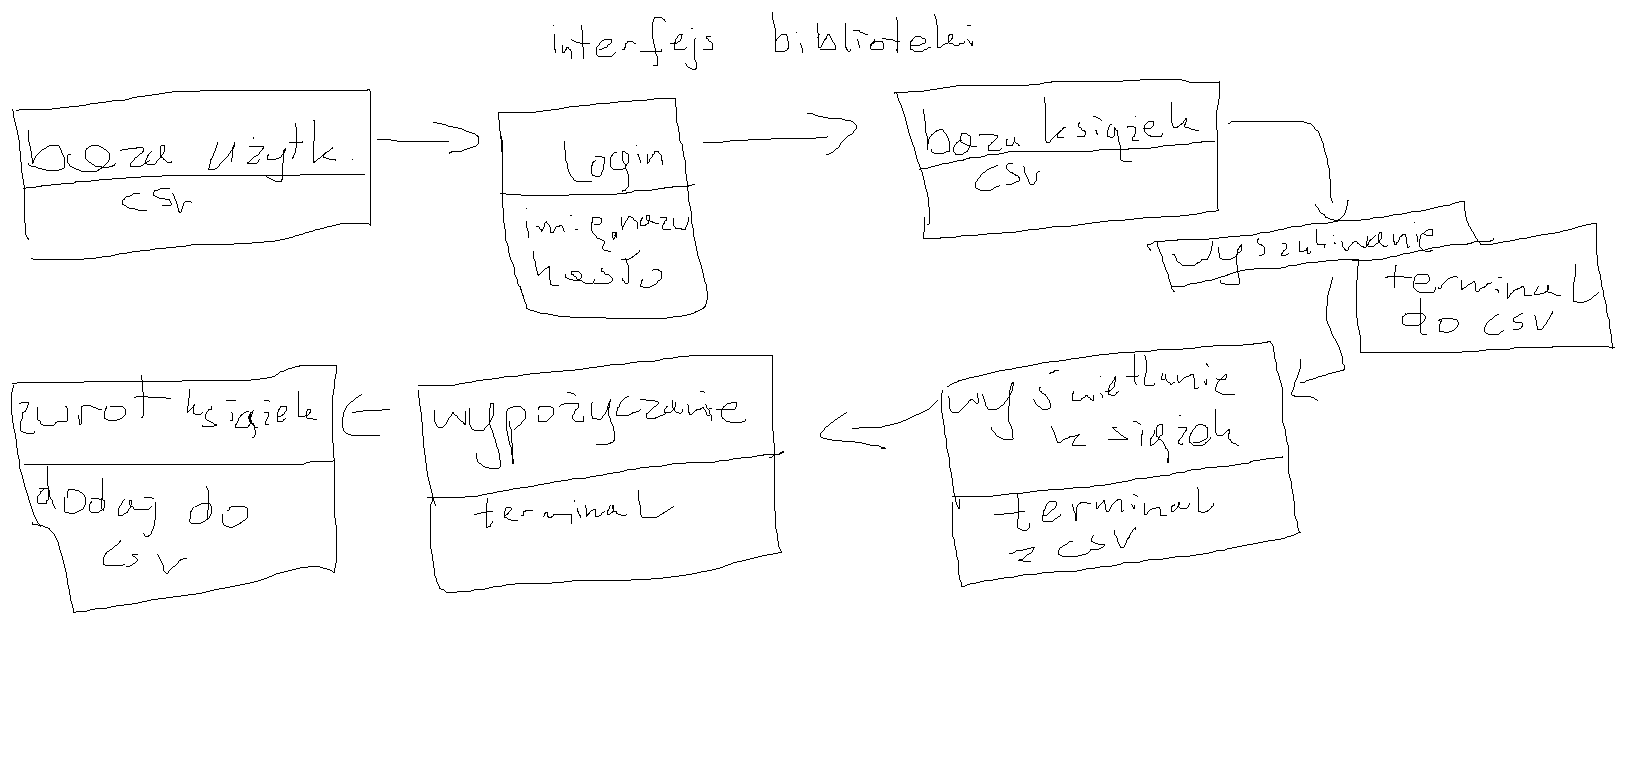 interfejs biblioteki
baza użytk.
csv
Login
imię, nazw
hasło
baza książek
csv
wyszukiwanie
terminal
do csv
wyświetlanie
książek
terminal
z csv
wypożyczanie
terminal
zwrot książek
dodaj do
csv